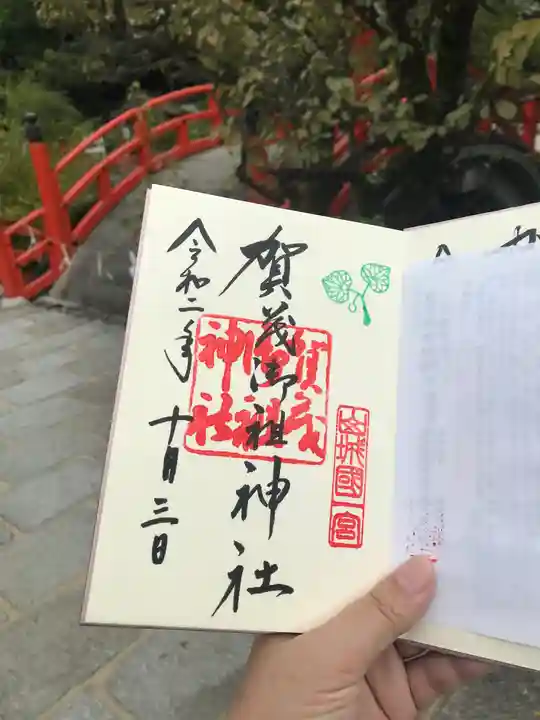 山城國一宮
賀茂御祖神社
賀茂
御祖
神社
令和二年
十月三日